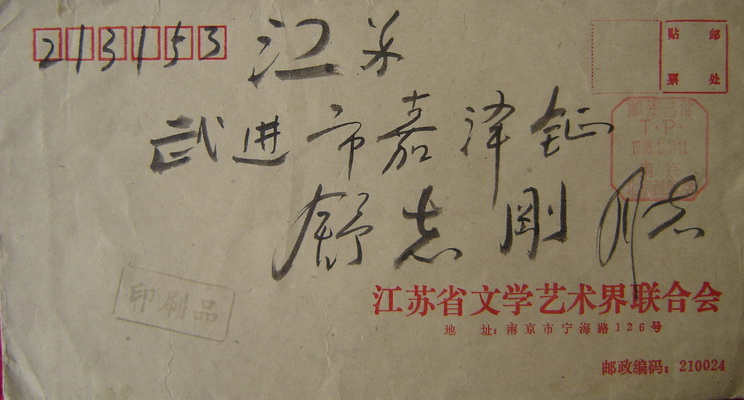 213153
江苏
贴 邮
票 处
武进市嘉泽镇
T.P.
舒志刚同志
印刷品
江苏省文学艺术界联合会
地 址: 南京市宁海路126号
邮政编码: 210024